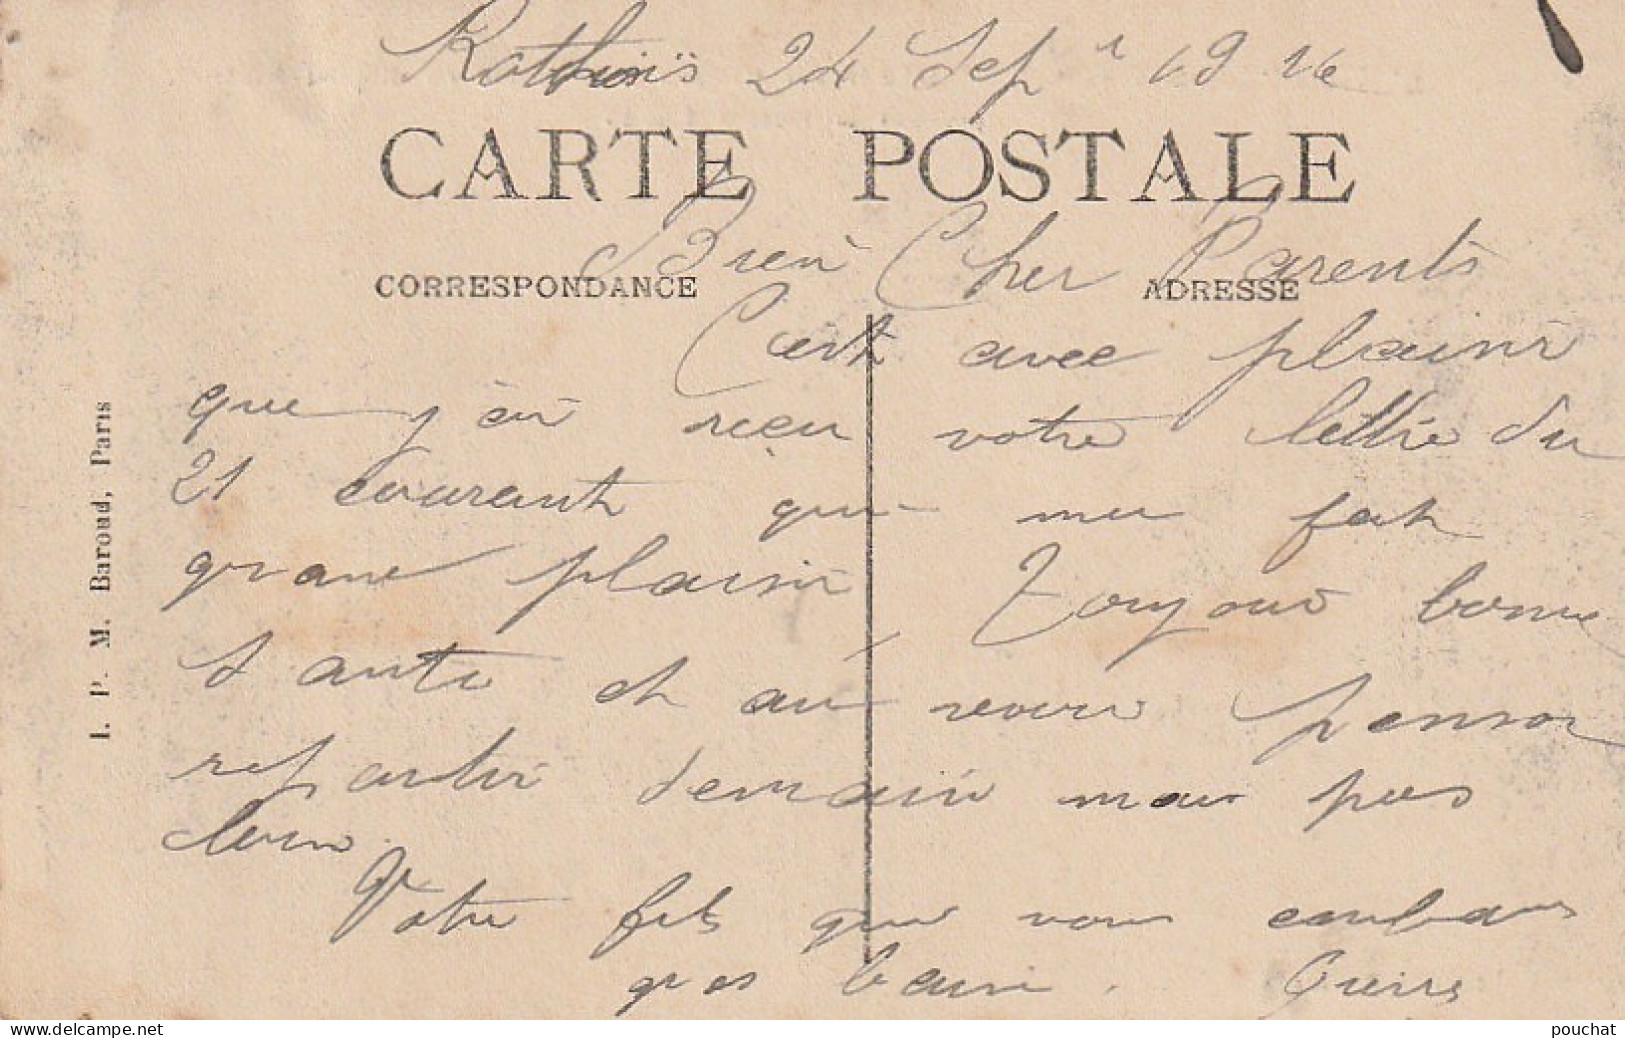 24 Sep r 1916
CARTE POSTALE
Bien Cher Parents
CORRESPONDANCE ADRESSE
C'est avec plaisir
que j'ai reçu votre lettre du
21 courant qui me fait
grand plaisir Toujours bonne
santé et au revoir pensons
repartir demain mais pas
loin.
Votre fils qui vous embrass
gros baisi.
I. P. M. Baroud, Paris
pouchat